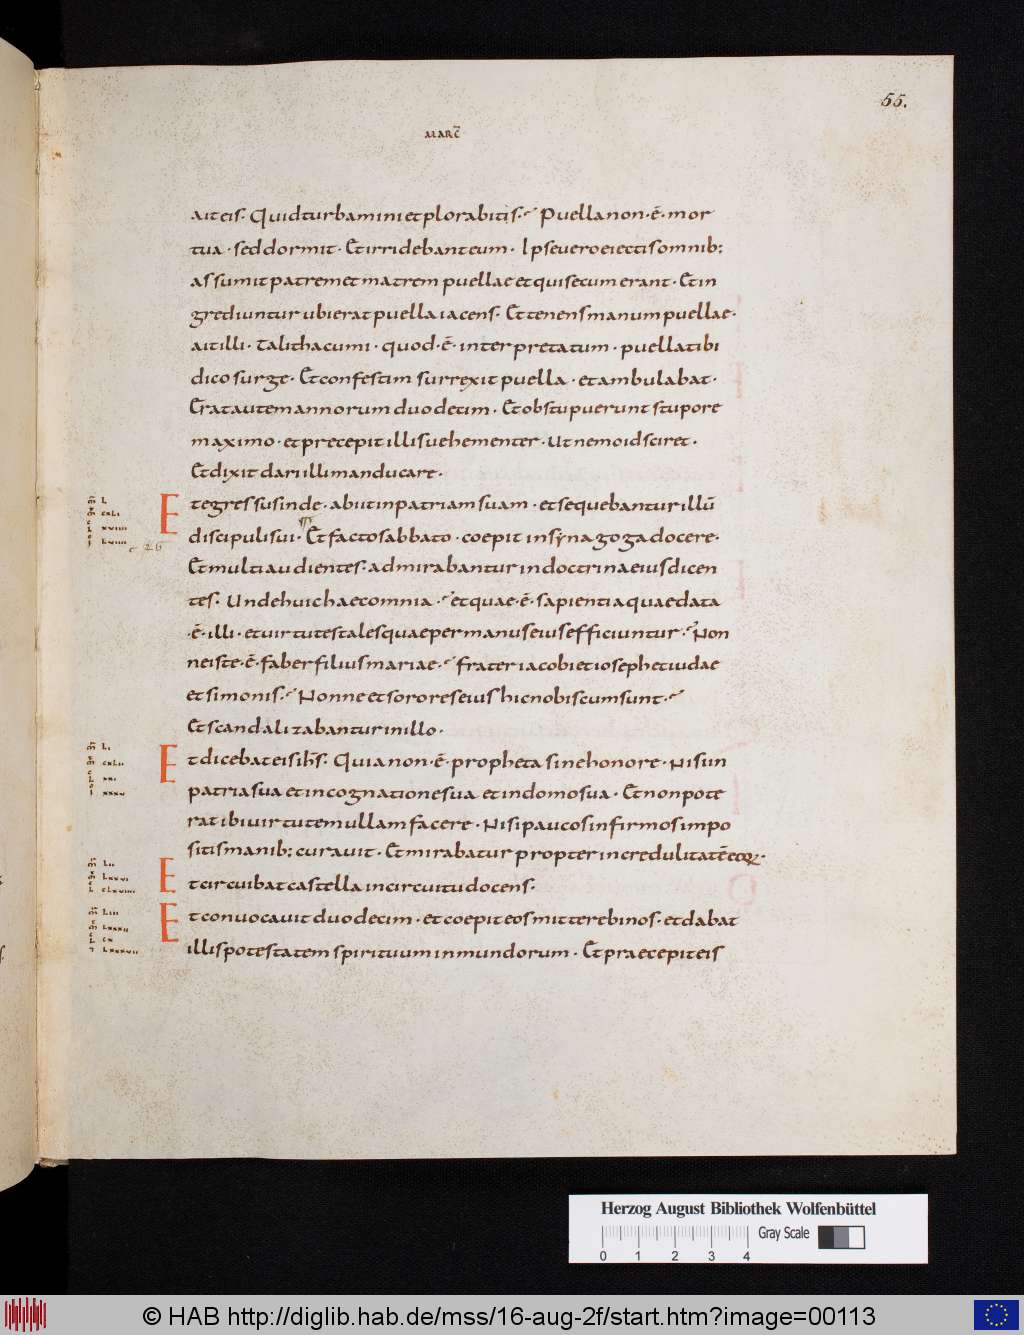 55.
MARC̄
ait eis. Quid turbamini et plorabitis. Puella non·ē·mor
tua·sed dormit·Et irridebant eum·Ipse vero eiectis omnib;
assumit patrem et matrem puellae et qui secum erant·Et in
grediuntur ubi erat puella iacens. Et tenens manum puellae·
ait illi·Talitha cumi·quod·ē·interpretatum·puella tibi
dico surge·Et confestim surrexit puella·et ambulabat·
Erat autem annorum duodecim·Et obstupuerunt stupore
maximo·et precepit illis uehementer·Ut nemo id sciret·
Et dixit dari illi manducare·
m̄ L
Et egressus inde·abiit in patriam suam·et sequebantur illū
m̄ cxLi
L xviiii
discipuli sui·Et facto sabbato·coepit in synagoga docere·
i Lviiii
c 26
Et multi audientes·admirabantur in doctrina eius dicen
tes·Unde huic haec omnia·et quae·ē·sapientia quae data
·ē·illi·et uirtutes tales quae per manus eius efficiuntur·Non
ne iste·ē·faber filius mariae·frater iacobi et ioseph et iudae
et simonis·Nonne et sorores eius hic nobiscum sunt·
Et scandalizabantur in illo·
m̄ Li
Et dicebat eis ih̄s·Quia non·ē·propheta sine honore·Nisi in
m̄ cxLii
L xxi
i xxxv
patria sua et in cognatione sua et in domo sua·Et non pote
rat ibi uirtutem ullam facere·Nisi paucos infirmos impo
sitis manib; curauit·Et mirabatur propter incredulitatē eoꝝ·
m̄ Lii
m̄ Lxxvi
L cLxviiii
Et circuibat castella in circuitu docens·
m̄ Liii
Et conuocauit duodecim·et coepit eos mittere binos·et dabat
m̄ Lxxxii
L cx
i Lxxxvii
illis potestatem spirituum inmundorum·Et praecepit eis
Herzog August Bibliothek Wolfenbüttel
Gray Scale
0 1 2 3 4
© HAB http://diglib.hab.de/mss/16-aug-2f/start.htm?image=00113